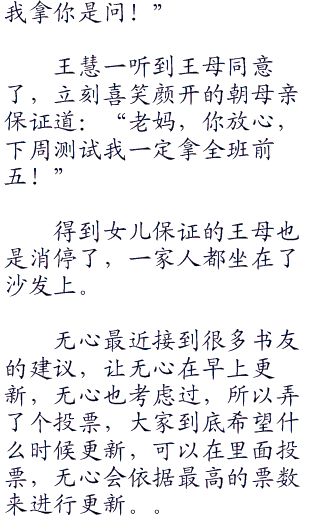 我拿你是问！”
王慧一听到王母同意
了，立刻喜笑颜开的朝母亲
保证道：“老妈，你放心，
下周测试我一定拿全班前
五！”
得到女儿保证的王母也
是消停了，一家人都坐在了
沙发上。
无心最近接到很多书友
的建议，让无心在早上更
新，无心也考虑过，所以弄
了个投票，大家到底希望什
么时候更新，可以在里面投
票，无心会依据最高的票数
来进行更新。。